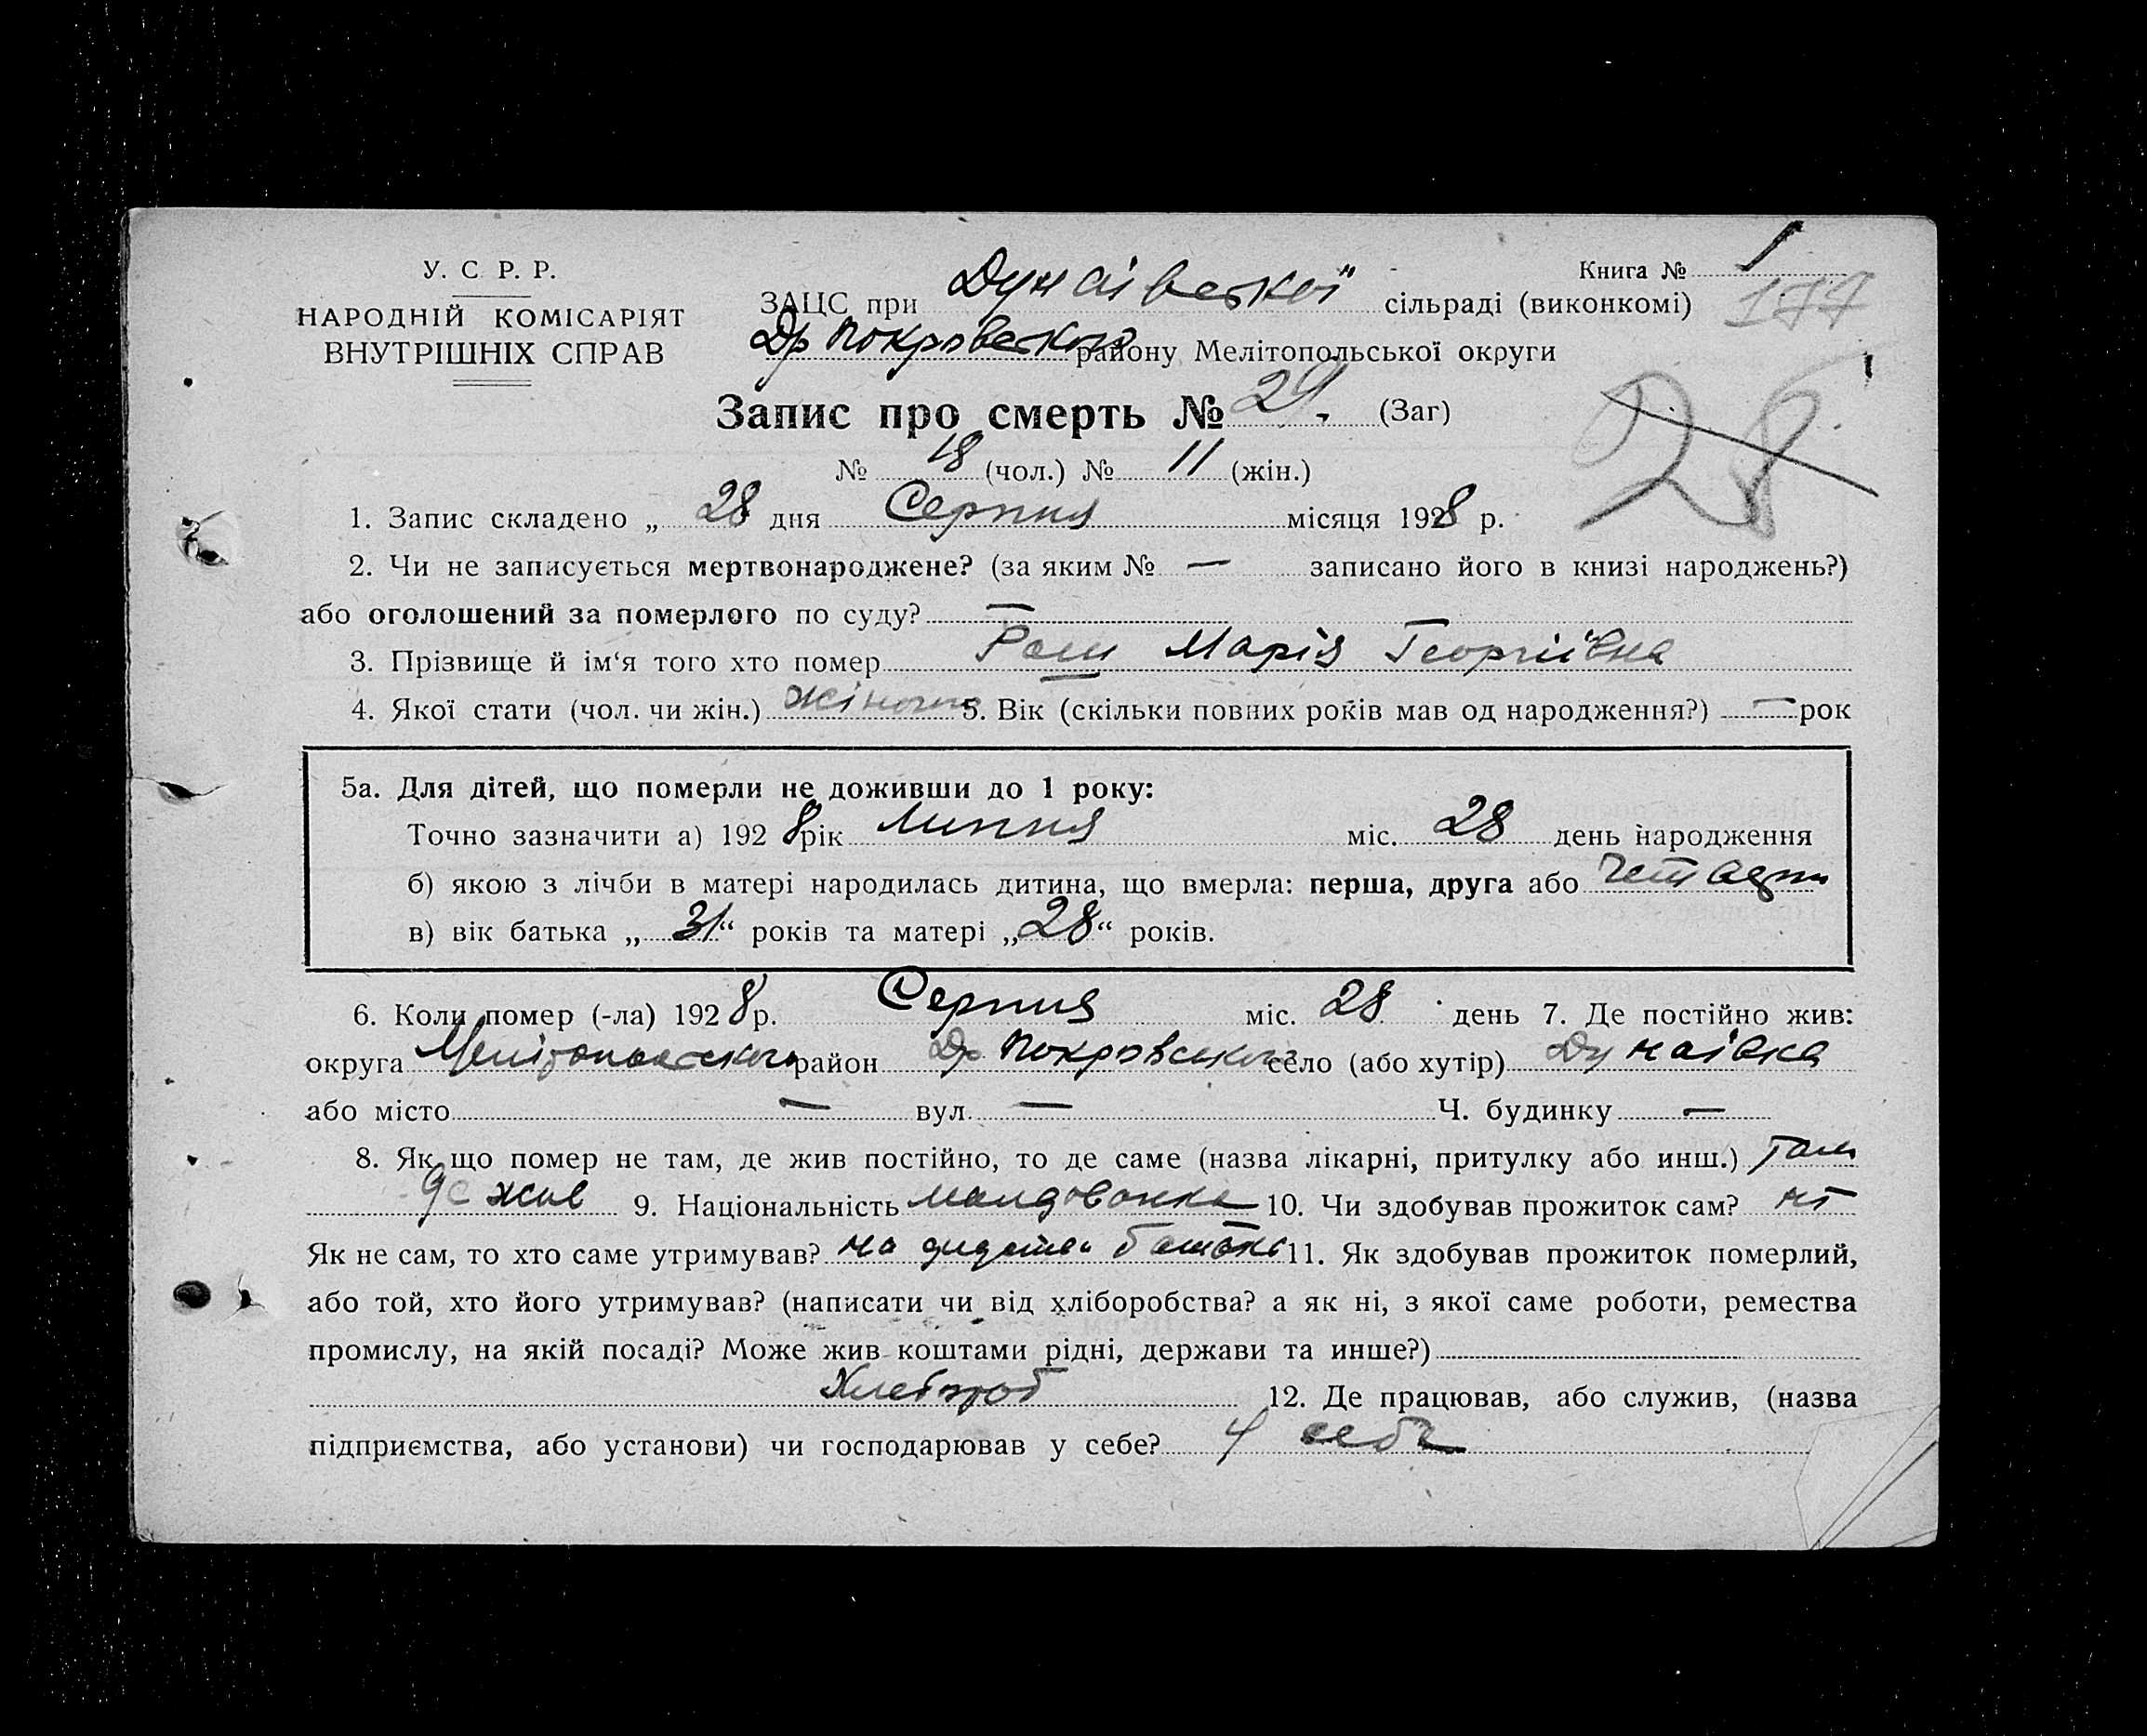 У. С. Р. Р.
НАРОДНІЙ КОМІСАРІЯТ
ВНУТРІШНІХ СПРАВ
Книга № 1
177
ЗАЦС при Дунаівської сільраді (виконкомі)
Др Покровского району Мелітопольської округи
Запис про смерть № 29. (Заг)
28
№ 18 (чол.) № 11 (жін.)
1. Запис складено „ 28 дня Серпня місяця 1928 р.
2. Чи не записується мертвонароджене? (за яким № — записано його в книзі народжень?)
або оголошений за померлого по суду? —
3. Прізвище й ім‘я того хто помер Марія Георгіївна
4. Якої стати (чол. чи жін.) жіноча 5. Вік (скільки повних років мав од народження?) — рок
5а. Для дітей, що померли не доживши до 1 року:
Точно зазначити а) 1928 рік Липня міс. 28 день народження
б) якою з лічби в матері народилась дитина, що вмерла: перша, друга або
в) вік батька „ 31 “ років та матері „ 28 “ років.
6. Коли помер (-ла) 1928 р. Серпня міс. 28 день 7. Де постійно жив:
округа район Др Покровського село (або хутір) Дунаівка
або місто — вул. — Ч. будинку —
8. Як що помер не там, де жив постійно, то де саме (назва лікарні, притулку або инш.) там
де жив 9. Національність молдованка 10. Чи здобував прожиток сам? ні
Як не сам, то хто саме утримував? на батька 11. Як здобував прожиток померлий,
або той, хто його утримував? (написати чи від хліборобства? а як ні, з якої саме роботи, ремества
промислу, на якій посаді? Може жив коштами рідні, держави та инше?)
Хлебороб 12. Де працював, або служив, (назва
підприємства, або установи) чи господарював у себе? У себе